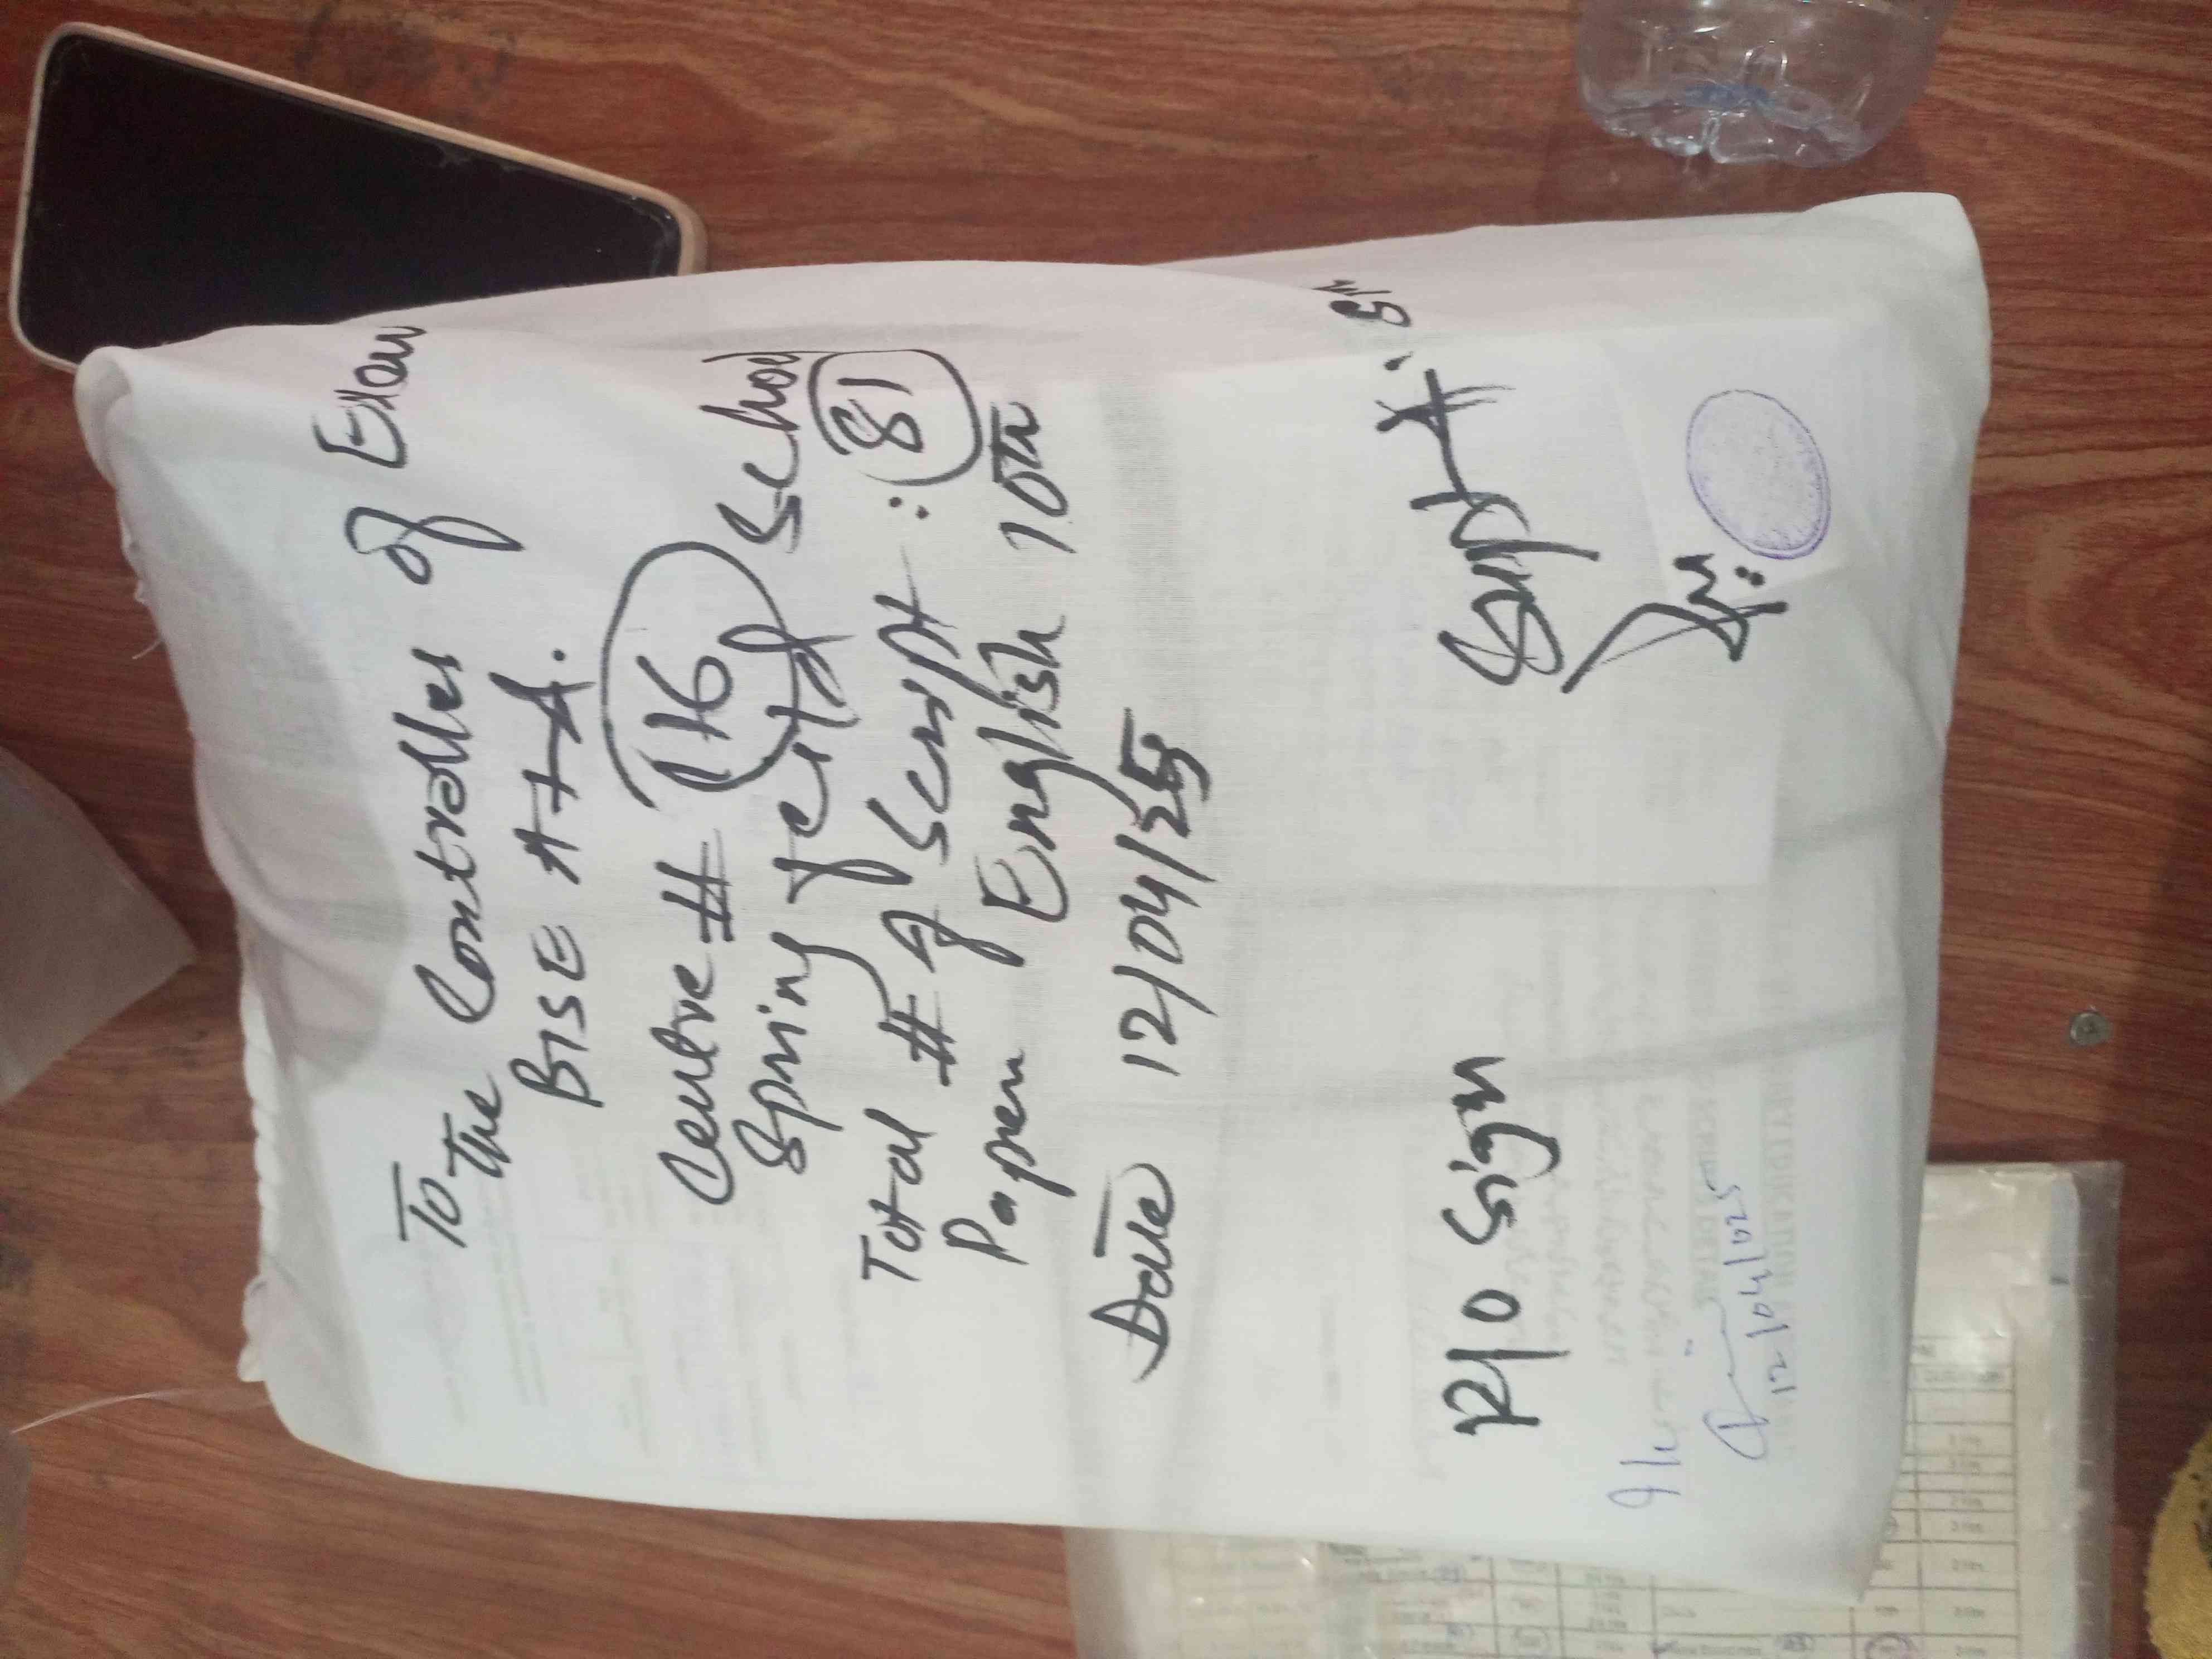 To
The Controller of Exam
BISE ATA.
Centre # 116
Spring field School
Total # of Script : 81
Paper English 10th
Date 12/04/25
R/O Sign
Supt
12/04/025